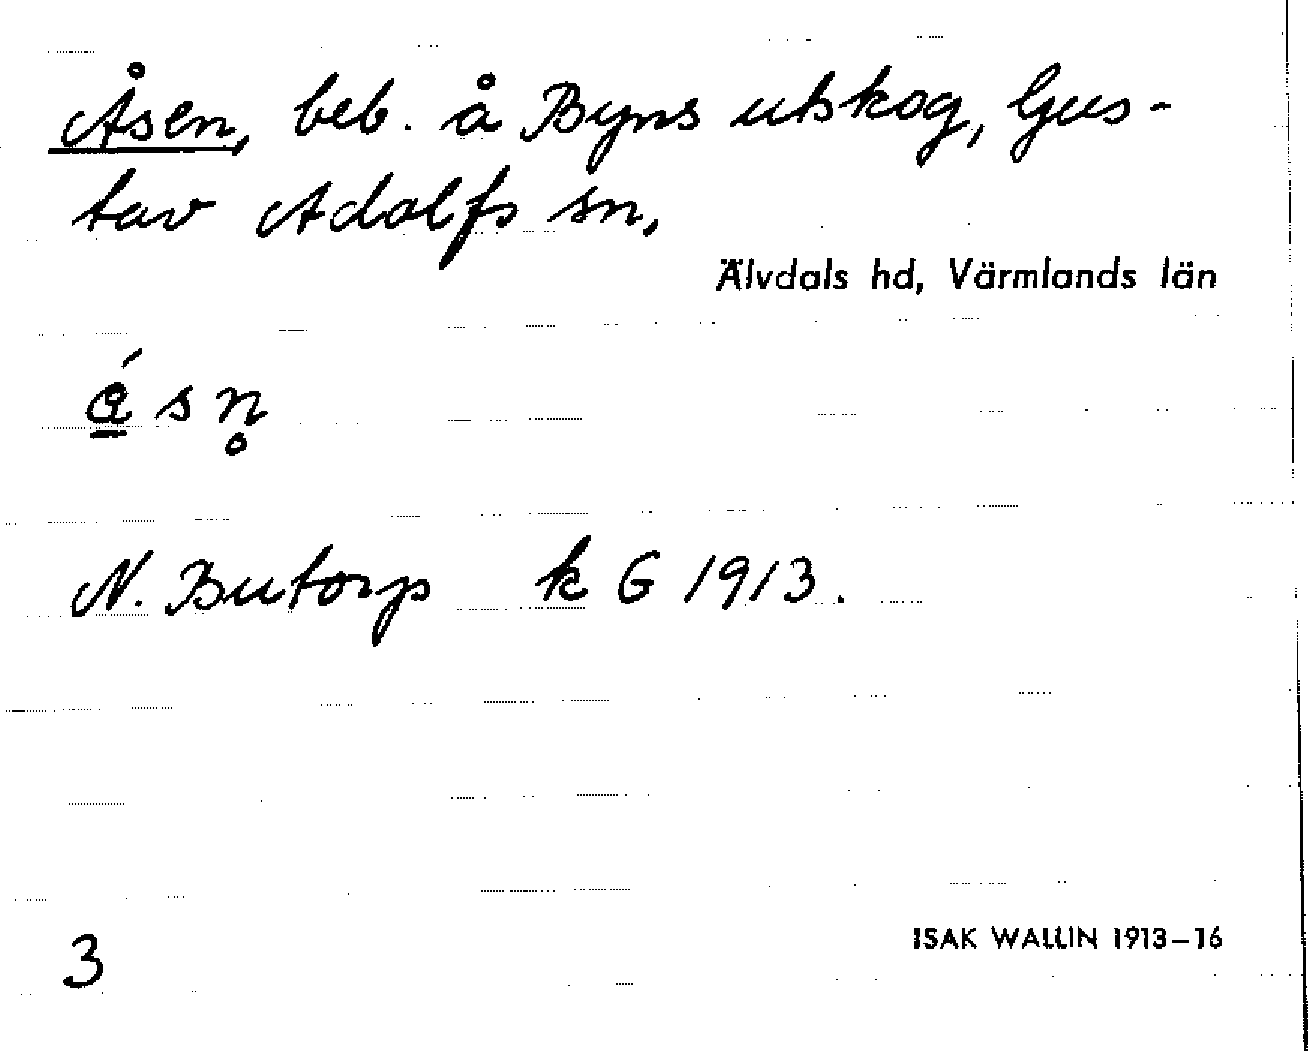 Åsen, beb. å Byns utskog, Gus-
tav Adolfs sn.
Älvdals hd, Värmlands län
N. Butorp k G 1913.
3
ISAK WALLIN 1913–16